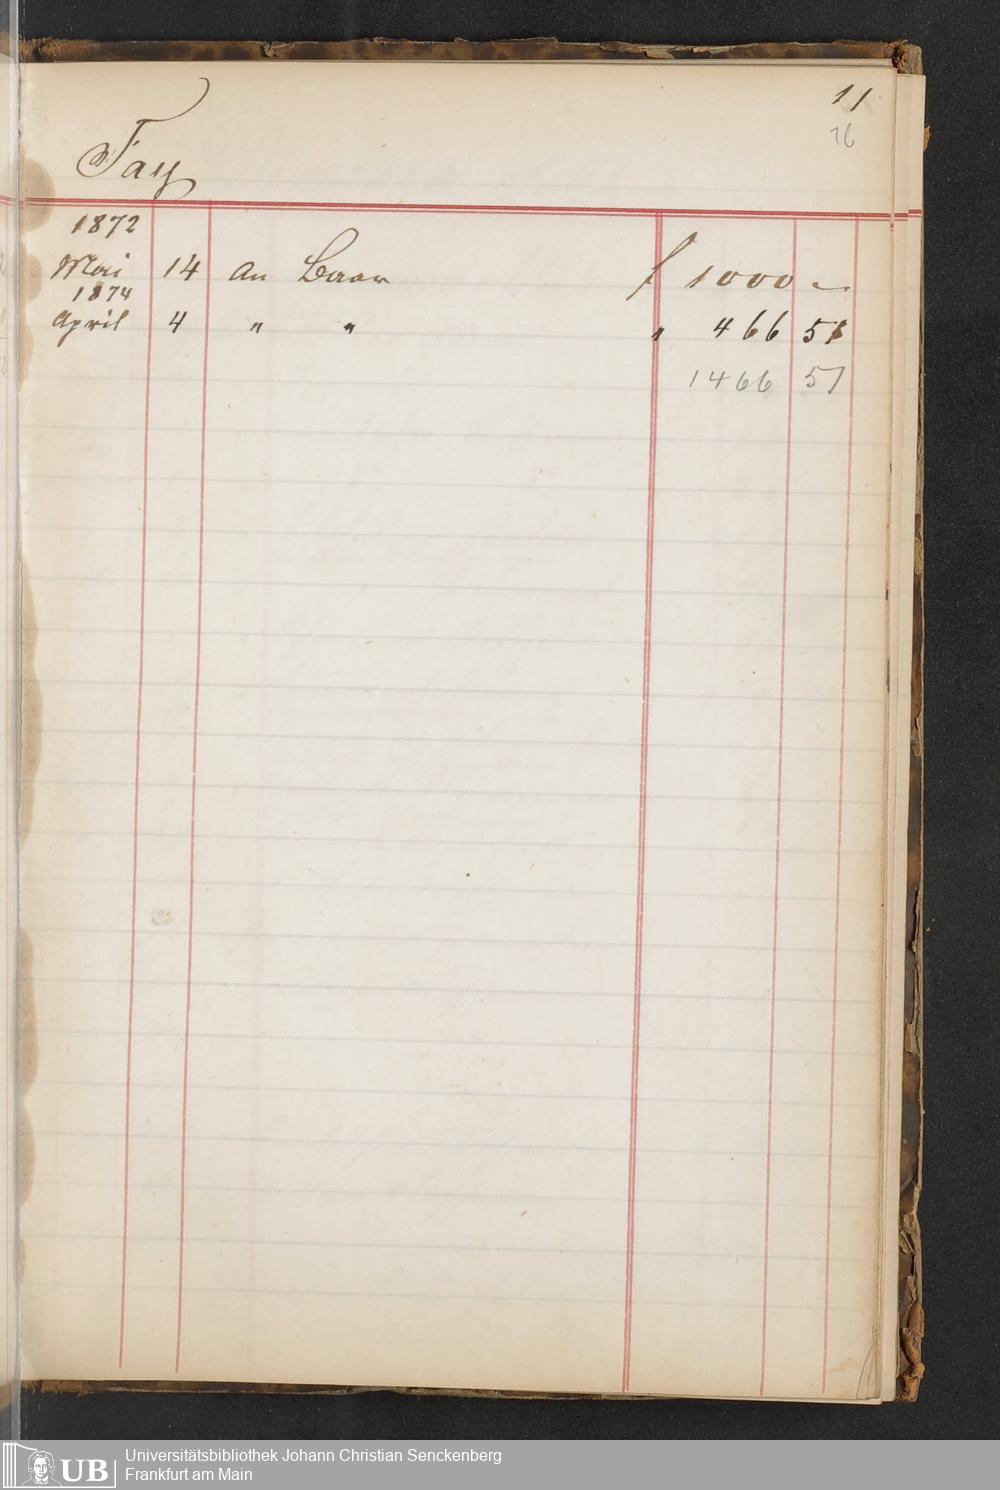 11
76
Fay
1872
Mai 14 An Baar f 1000 –
1874
April 4 " " " 466 51
1466 51
UB Universitätsbibliothek Johann Christian Senckenberg
Frankfurt am Main